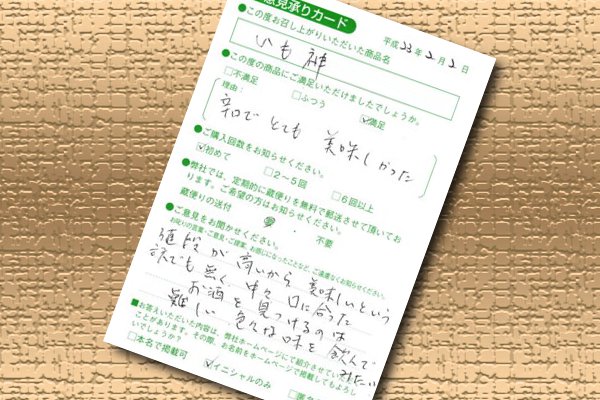 意見承りカード
平成23年2月2日
●この度お召し上がりいただいた商品名
いも神
●この度の商品にご満足いただけましたでしょうか。
□不満足 □ふつう ☑満足
理由:
辛口でとても美味しかった
●ご購入回数をお知らせください。
☑初めて □2〜5回 □6回以上
●弊社では、定期的に蔵便りを無料で郵送させて頂いてお
ります。ご希望の方はお知らせください。
蔵便りの送付 ・ 不要
●ご意見をお聞かせください。
お叱りの言葉・ご意見・ご提案、お感じになったことなど、ご遠慮なくお知らせください。
値段が高いから美味しいという
訳でも無く、中々口に合った
お酒を見つけるのは
難しい 色々な味を飲んで
みたい
■お答えいただいた内容は、弊社ホームページにて紹介させていた
ことがあります。その際、お名前をホームページで掲載してもよろし
いでしょうか?
□本名で掲載可 ☑イニシャルのみ